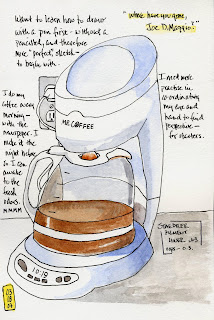 Want to learn how to draw
with a pen first - without a
penciled, and therefore
more "perfect," sketch -
to begin with -
"Where have you gone,
Joe DiMaggio?"
I do my
coffee every
morning -
with the
newspaper. I
make it the
night before
so I can
awake to
the fresh
MMMM
I need more
practice in
co-ordinating
my eye and
hand to find
perspective -
for starters.
MR. COFFEE
10:19
03
18
09